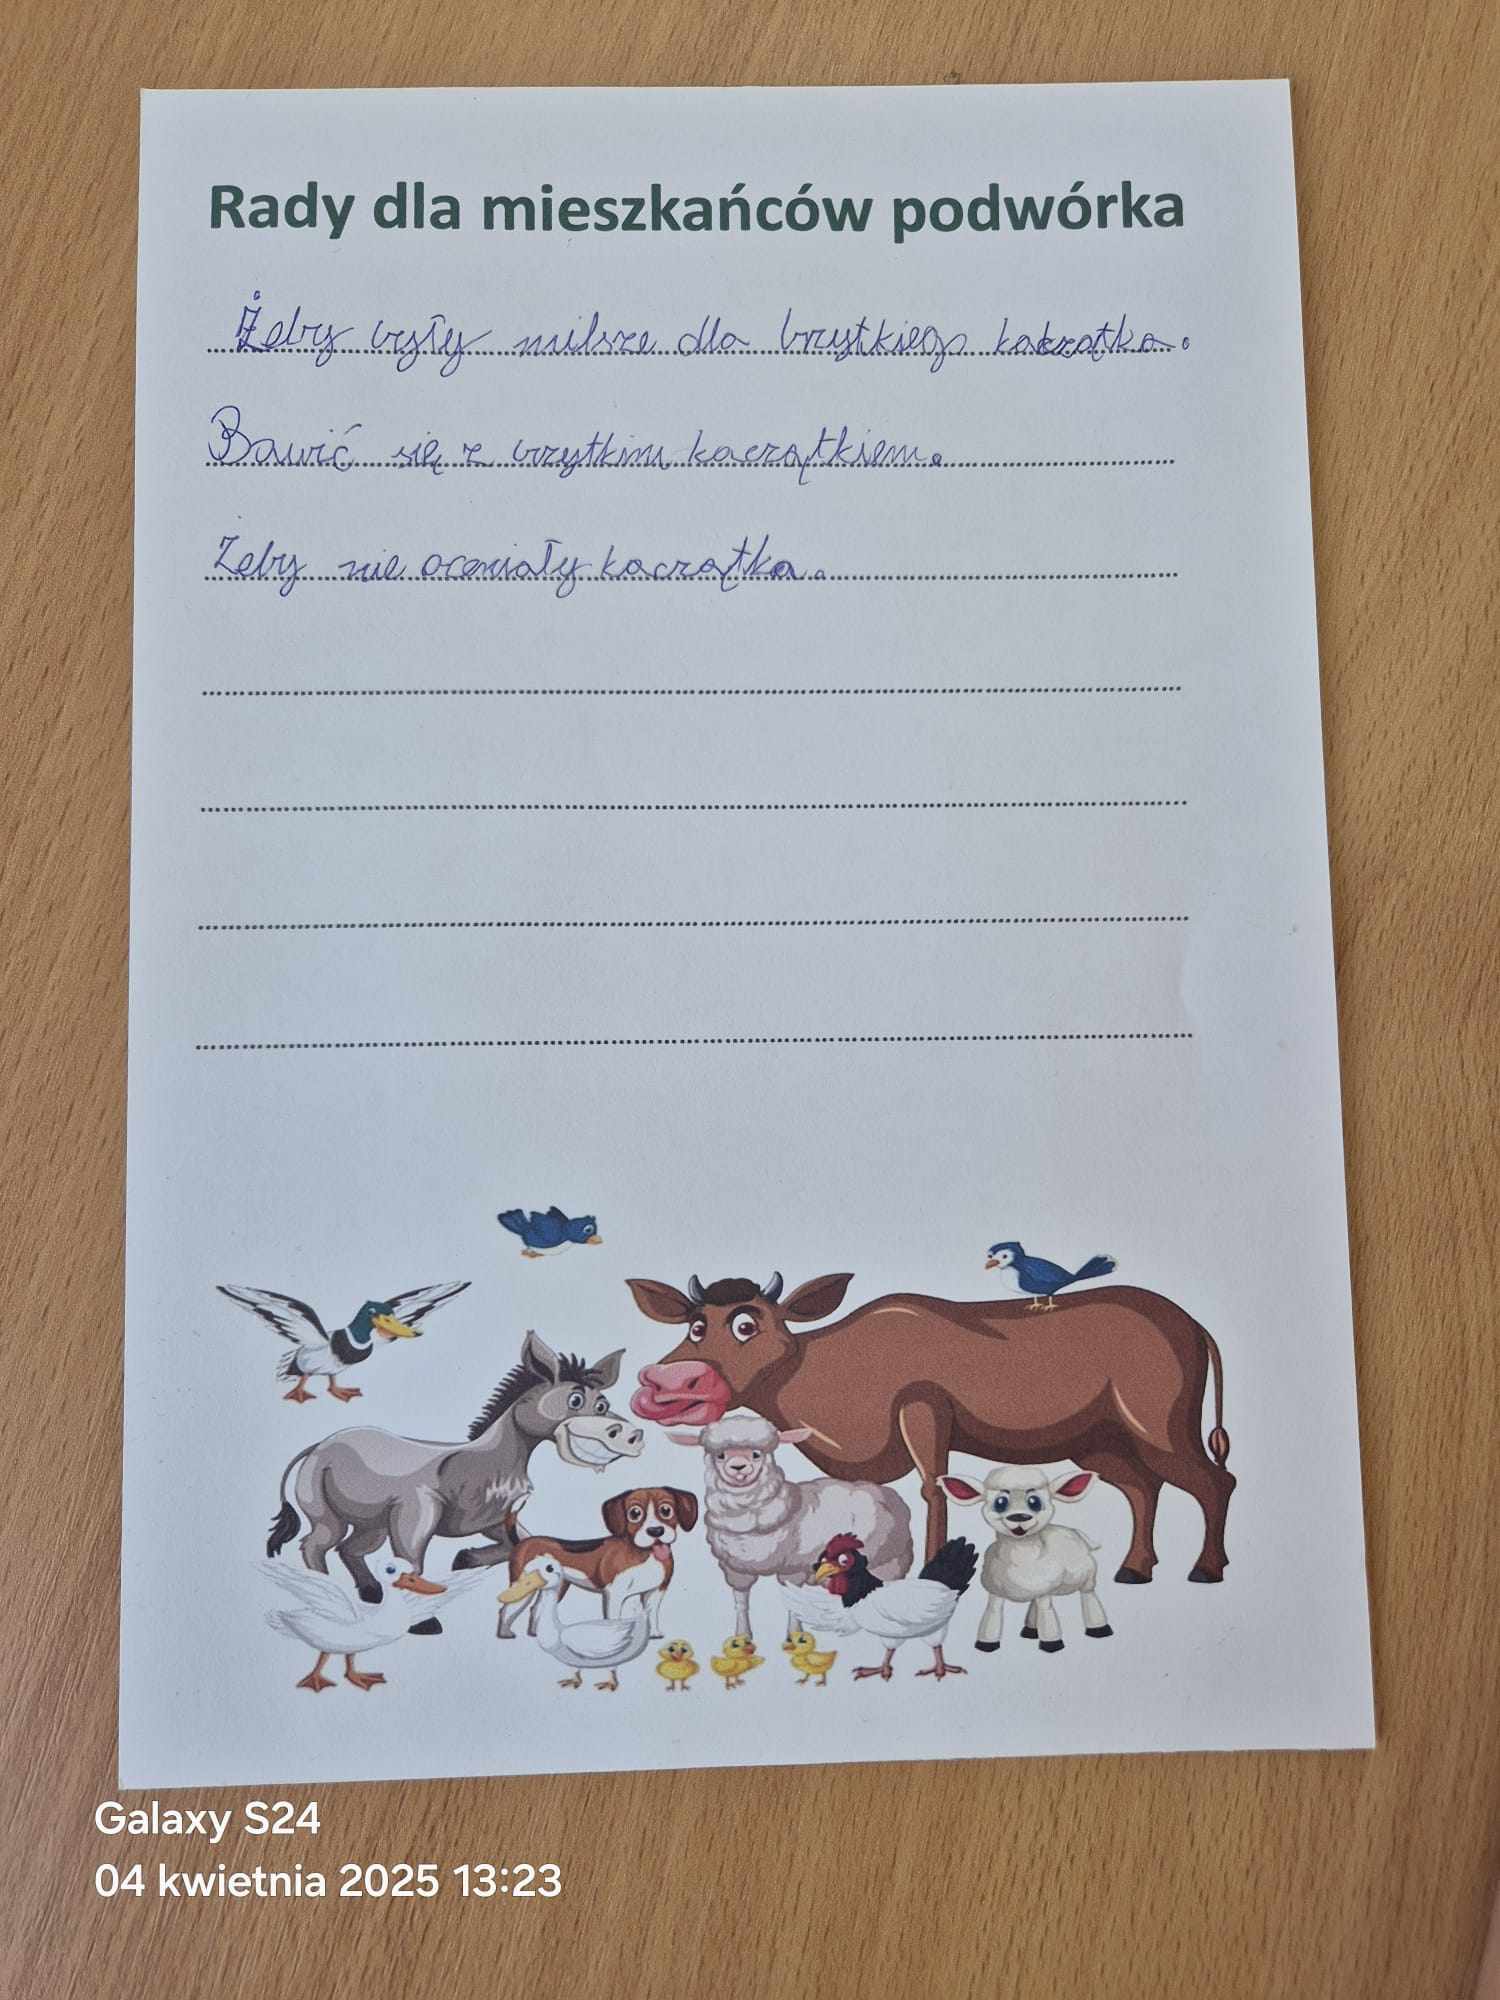 Rady dla mieszkańców podwórka
Żeby były milsze dla brzytkiego kaczątka.
Bawić się z brzytkim kaczątkiem.
Żeby nie oceniały kaczątka.
Galaxy S24
04 kwietnia 2025 13:23